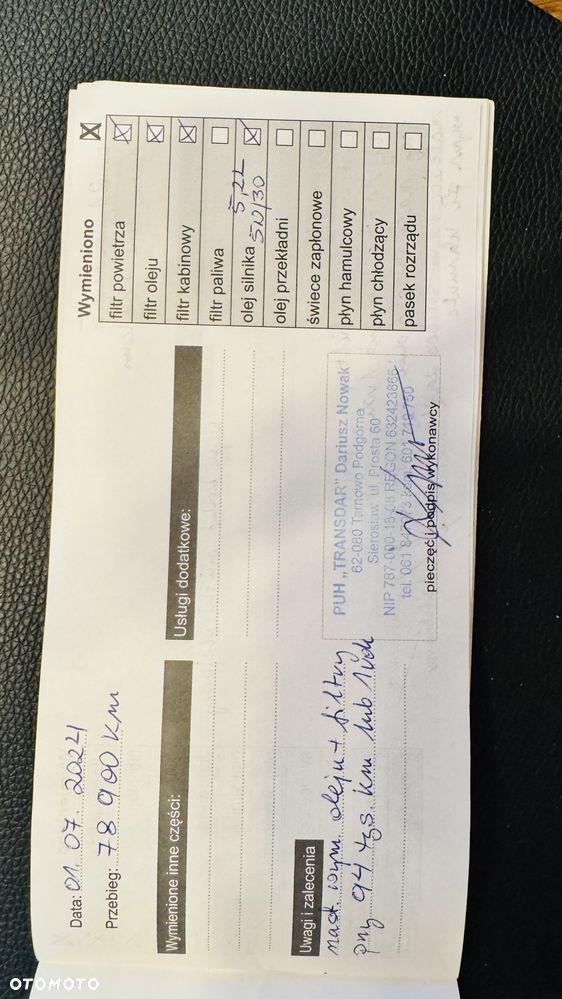 Data: 01.07.2024
Przebieg: 78 900 km
Wymienione inne części:
Usługi dodatkowe:
Wymieniono X
filtr powietrza X
filtr oleju X
filtr kabinowy X
filtr paliwa
olej silnika 5,2L 5W/30 X
olej przekładni
świece zapłonowe
płyn hamulcowy
płyn chłodzący
pasek rozrządu
Uwagi i zalecenia
nast. wym. oleju + filtry
przy 94 tyś km lub 1 rok
PUH „TRANSDAR" Dariusz Nowak
62-080 Tarnowo Podgórne
Sierosław, ul. Prosta 60
NIP 787-000-18-03 REGON 632423866
tel. 061 kom. 601
pieczęć i podpis wykonawcy
OTOMOTO